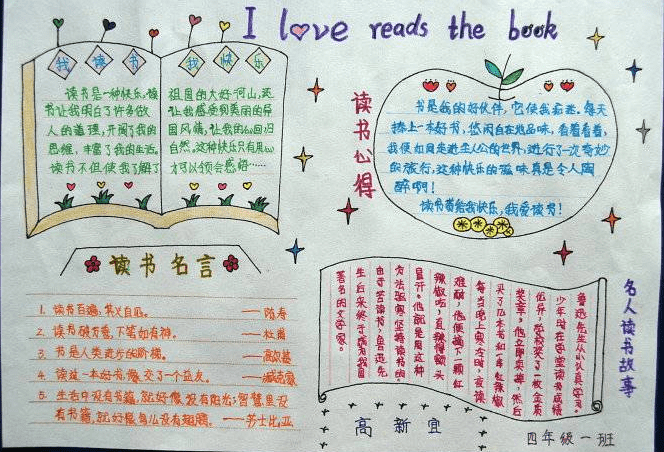 I love reads the book
我读书 我快乐
读书是一种快乐,读
书让我明白了许多做
人的道理,开阔了我的
思维,丰富了我的生活。
读书不但使我了解了
祖国的大好河山,还
让我感质到美丽的异
国风情,让我的心回归
自然,这种快乐只有用心
才可以领会感悟……
读书心得
书是我的好伙伴,它使我着迷。每天
捧上一本好书,悠闲自在地品味,看着看着,
我便如同走进主人公的世界,进行了一次奇妙
的旅行,这种快乐的滋味真是令人陶
醉啊!
读书带给我快乐,我爱读书!
读书名言
1. 读书百遍,其义自见。 ——陈寿
2. 读书破万卷,下笔如有神。 ——杜甫
3. 书是人类进步的阶梯。 ——高尔基
4. 读过一本好书,像交了一个益友。 ——臧克家
5. 生活中没有书籍,就好像没有阳光;智慧里没
有书籍,就好像鸟儿没有翅膀。 ——莎士比亚
名人读书故事
鲁迅先生从小认真学习。
少年时在学堂读书成绩
优异,学校奖了一枚金质
奖章,他立即卖掉,然后
买了几本书和一串红辣椒
每当晚上寒冷时,夜读
难耐,他便摘下一颗红
辣椒吃,直辣得额头
冒汗。他就是用这种
方法驱寒坚持读书的。
由于苦读书,鲁迅先
生后来终于成为我国
著名的文学家。
高新宜
四年级一班